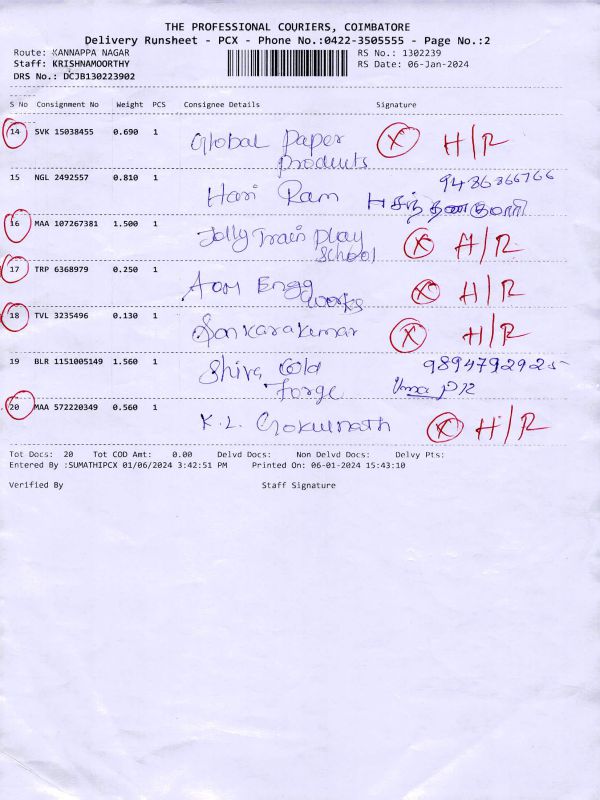 THE PROFESSIONAL COURIERS, COIMBATORE
Delivery Runsheet - PCX - Phone No.:0422-3505555 - Page No.:2
Route: KANNAPPA NAGAR RS No.: 1302239
Staff: KRISHNAMOORTHY RS Date: 06-Jan-2024
DRS No.: DCJB130223902
S No Consignment No Weight PCS Consignee Details Signature
14 SVK 15038455 0.690 1 Global Paper Products X H/R
15 NGL 2492557 0.810 1 Hari Ram 9486866766
16 MAA 107267381 1.500 1 Jolly Train Play School X H/R
17 TRP 6368979 0.250 1 Aom Engg Works X H/R
18 TVL 3235496 0.130 1 Sankarakumar X H/R
19 BLR 1151005149 1.560 1 Shiva Gold Forge 9894792925
20 MAA 572220349 0.560 1 K.L. Gokulnath X H/R
Tot Docs: 20 Tot COD Amt: 0.00 Delvd Docs: Non Delvd Docs: Delvy Pts:
Entered By :SUMATHIPCX 01/06/2024 3:42:51 PM Printed On: 06-01-2024 15:43:10
Verified By Staff Signature